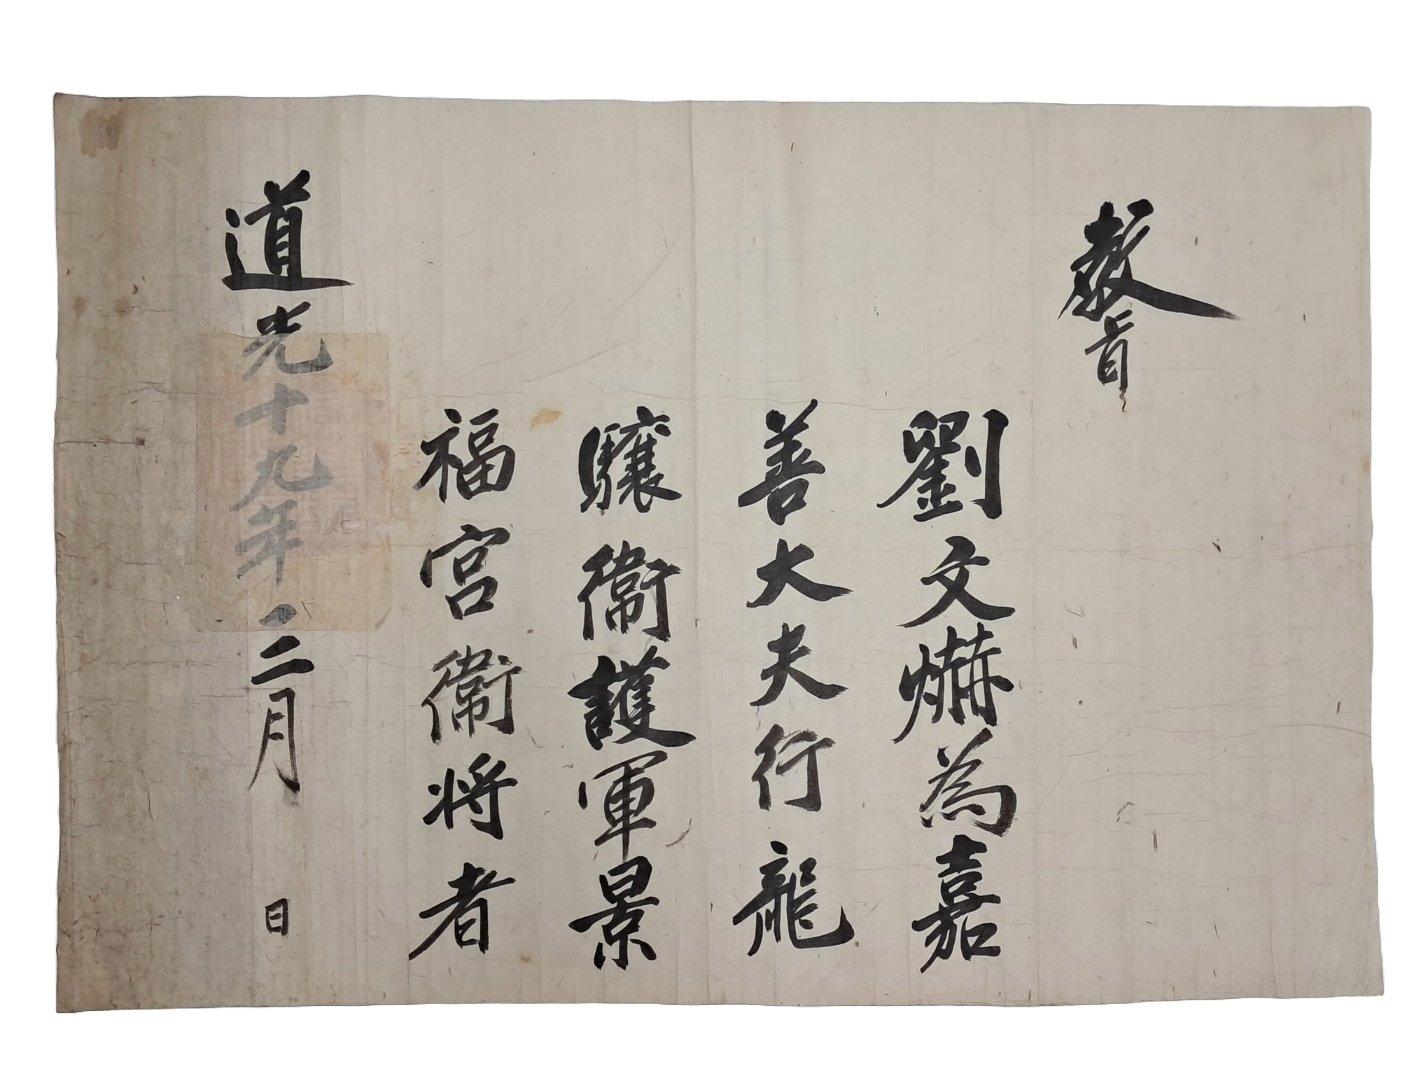 教旨
劉文爀為嘉
善大夫行龍
驤衛護軍景
福宮衛将者
道光十九年三月 日